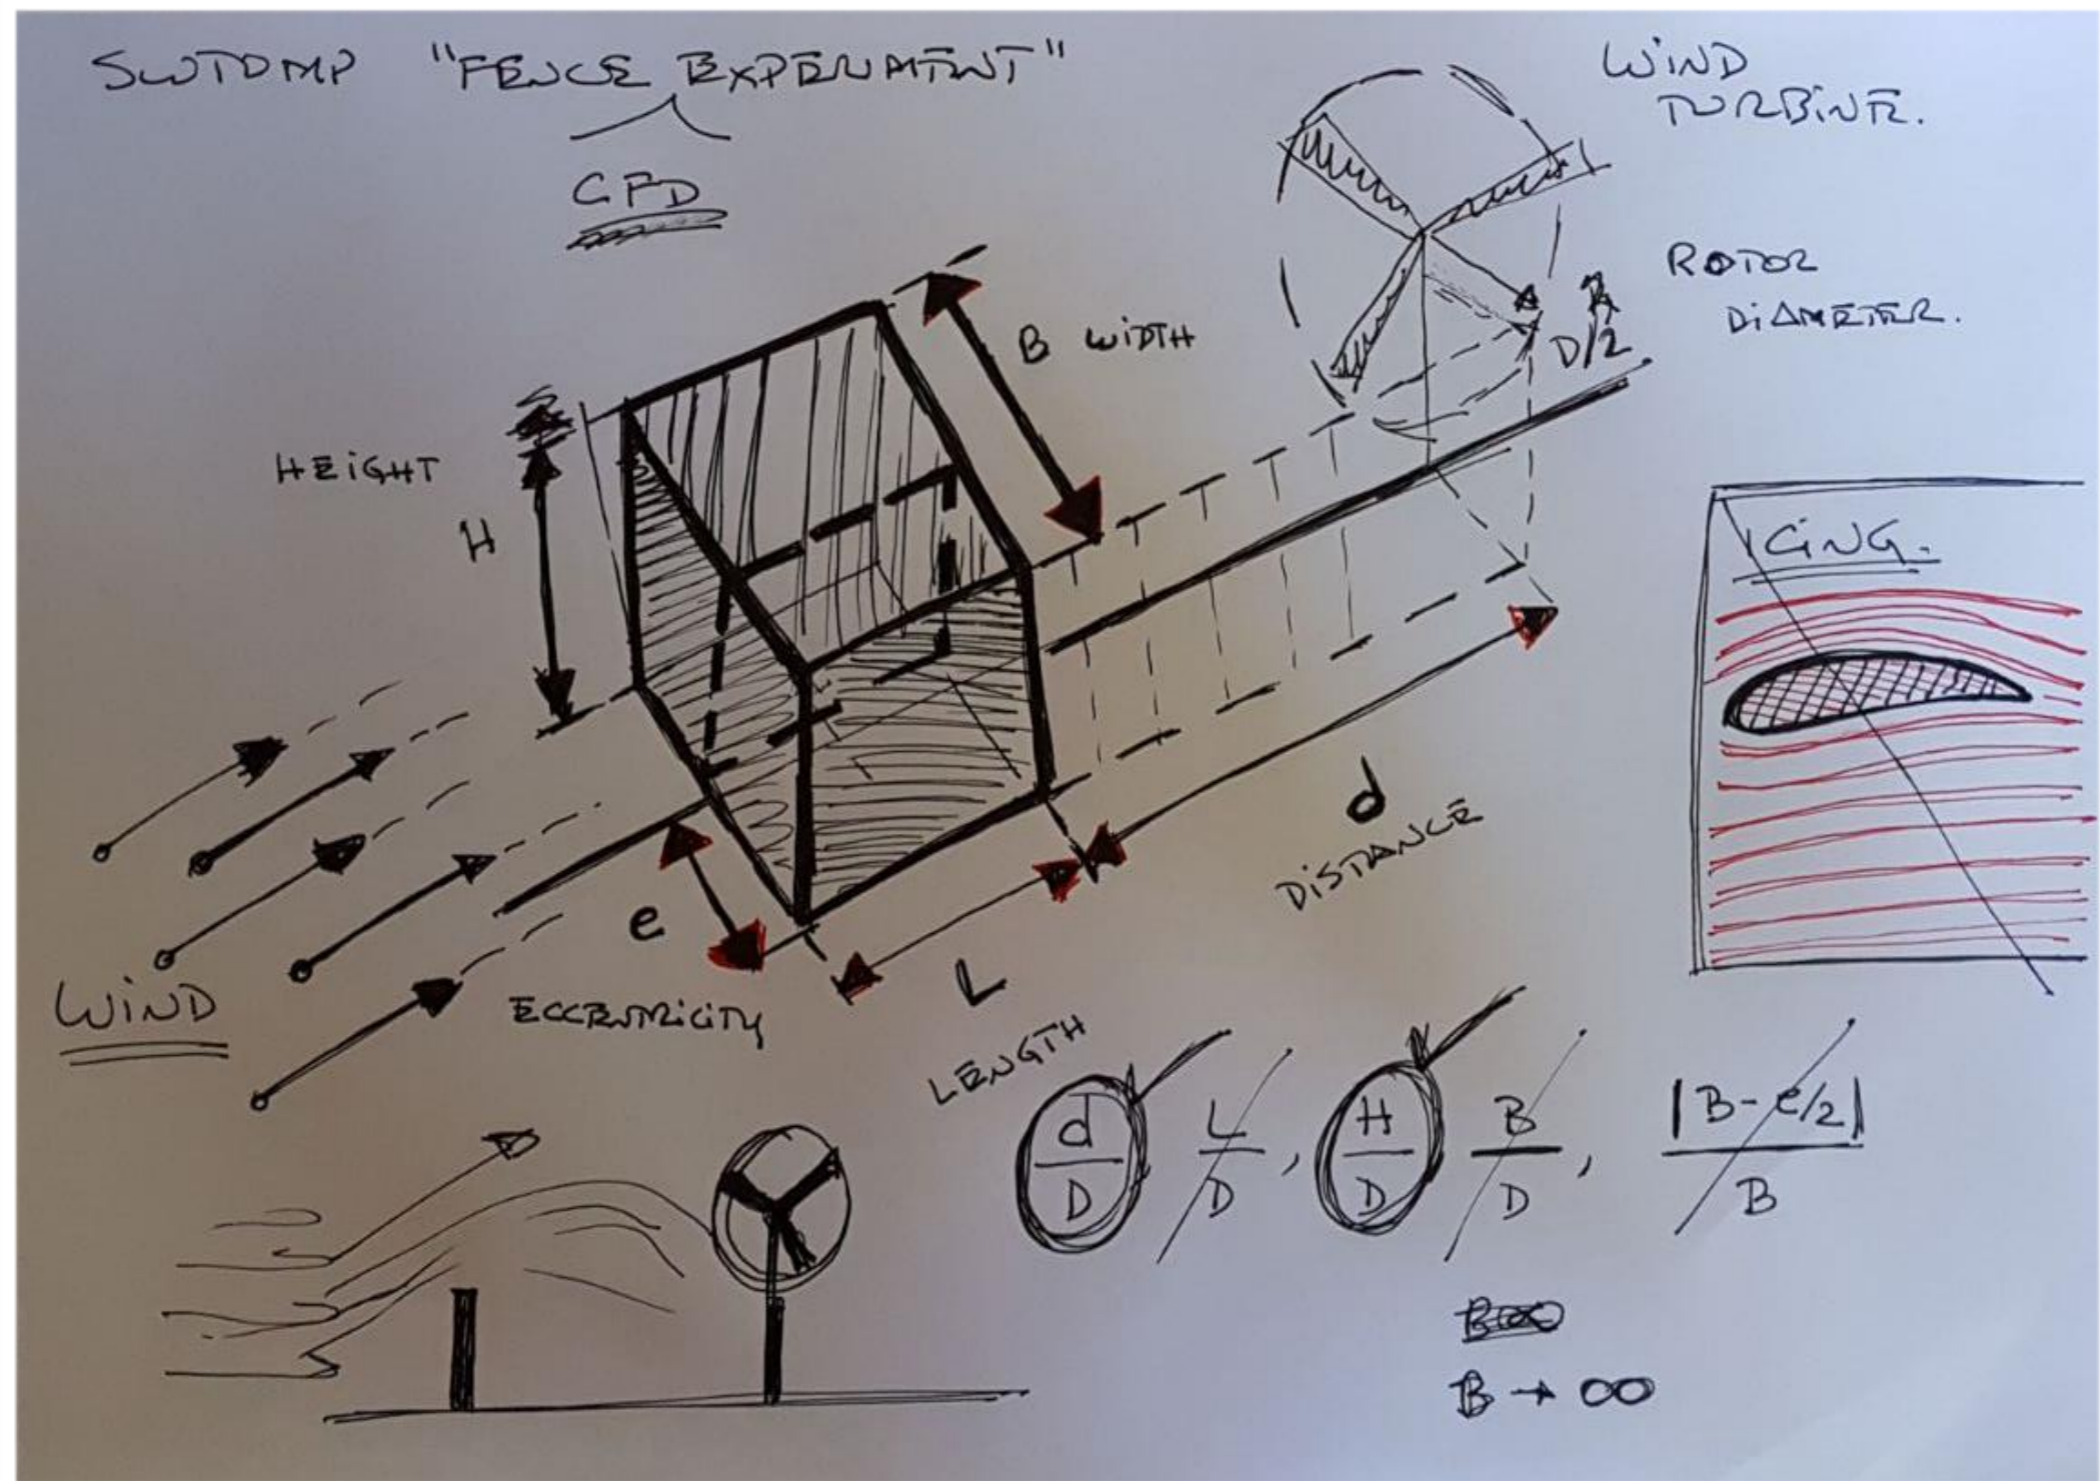 SWTOMP "FENCE EXPERIMENT"
CFD
WIND
TURBINE.
ROTOR
DIAMETER.
D/2
B WIDTH
HEIGHT
H
ICING.
d
DISTANCE
e
ECCENTRICITY
L
LENGTH
WIND
d/D L/D, H/D B/D, |B-e/2|/B
B → ∞